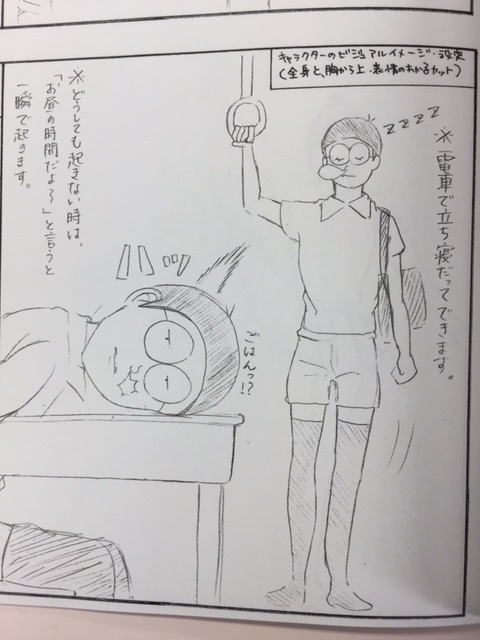 キャラクターのビジュアルイメージ・設定
(全身と、胸から上・表情のわかるカット)
zzzz
※電車で立ち寝だってできます。
※どうしても起きない時は、
「お昼の時間だよ〜」と言うと
一瞬で起きます。
ごはんっ!?